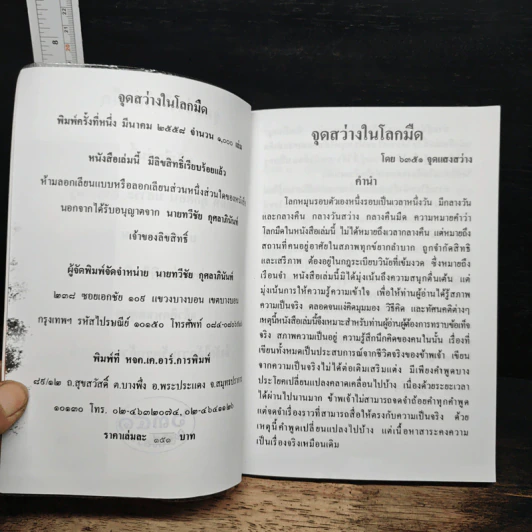 จุดสว่างในโลกมืด
พิมพ์ครั้งที่หนึ่ง มีนาคม ๒๕๕๘ จำนวน ๑,๐๐๐ เล่ม
หนังสือเล่มนี้ มีลิขสิทธิ์เรียบร้อยแล้ว
ห้ามลอกเลียนแบบหรือลอกเลียนส่วนหนึ่งส่วนใดของหนังสือ
นอกจากได้รับอนุญาตจาก นายทวีชัย กุศลาภินันท์
เจ้าของลิขสิทธิ์
ผู้จัดพิมพ์จัดจำหน่าย นายทวีชัย กุศลาภินันท์
๒๓๘ ซอยเอกชัย ๑๐๙ แขวงบางบอน เขตบางบอน
กรุงเทพฯ รหัสไปรษณีย์ ๑๐๑๕๐ โทรศัพท์
พิมพ์ที่ หจก.เค.อาร์.การพิมพ์
๘๙/๑๒ ถ.สุขสวัสดิ์ ต.บางพึ่ง อ.พระประแดง จ.สมุทรปราการ
๑๐๑๓๐ โทร.
ราคาเล่มละ ๑๕๑ บาท
จุดสว่างในโลกมืด
โดย ๖๓๕๑ จุดแสงสว่าง
คำนำ
โลกหมุนรอบตัวเองหนึ่งรอบเป็นเวลาหนึ่งวัน มีกลางวัน
และกลางคืน กลางวันสว่าง กลางคืนมืด ความหมายคำว่า
โลกมืดในหนังสือเล่มนี้ ไม่ได้หมายถึงเวลากลางคืน แต่หมายถึง
สถานที่คนอยู่อาศัยในสภาพทุกข์ยากลำบาก ถูกจำกัดสิทธิ
และเสรีภาพ ต้องอยู่ในกฎระเบียบวินัยที่เข้มงวด ซึ่งหมายถึง
เรือนจำ หนังสือเล่มนี้มิได้มุ่งเน้นถึงความสนุกตื่นเต้น แต่
มุ่งเน้นการให้ความรู้ความเข้าใจ เพื่อให้ท่านผู้อ่านได้รู้สภาพ
ความเป็นจริง ตลอดจนแง่คิดมุมมอง วิธีคิด และทัศนคติต่างๆ
เหตุนี้หนังสือเล่มนี้จึงเหมาะสำหรับท่านผู้อ่านผู้ต้องการทราบข้อเท็จ
จริง สภาพความเป็นอยู่ ความรู้สึกนึกคิดของคนในนั้น เรื่องที่
เขียนทั้งหมดเป็นประสบการณ์จากชีวิตจริงของข้าพเจ้า เขียน
จากความเป็นจริงไม่ได้ต่อเติมเสริมแต่ง มีเพียงคำพูดบาง
ประโยคเปลี่ยนแปลงคลาดเคลื่อนไปบ้าง เนื่องด้วยระยะเวลา
ได้ผ่านไปนานมาก ข้าพเจ้าไม่สามารถจดจำถ้อยคำทุกคำพูด
แต่จดจำเรื่องราวที่สามารถสื่อให้ตรงกับความเป็นจริง ด้วย
เหตุนี้คำพูดเปลี่ยนแปลงไปบ้าง แต่เนื้อหาสาระคงความ
เป็นเรื่องจริงเหมือนเดิม